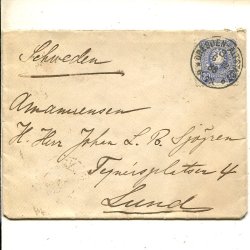 Schweden
Amanuensen
H. Herr Johan L. B. Sjögren
Tegnérsplatsen 4
Lund
DRESDEN